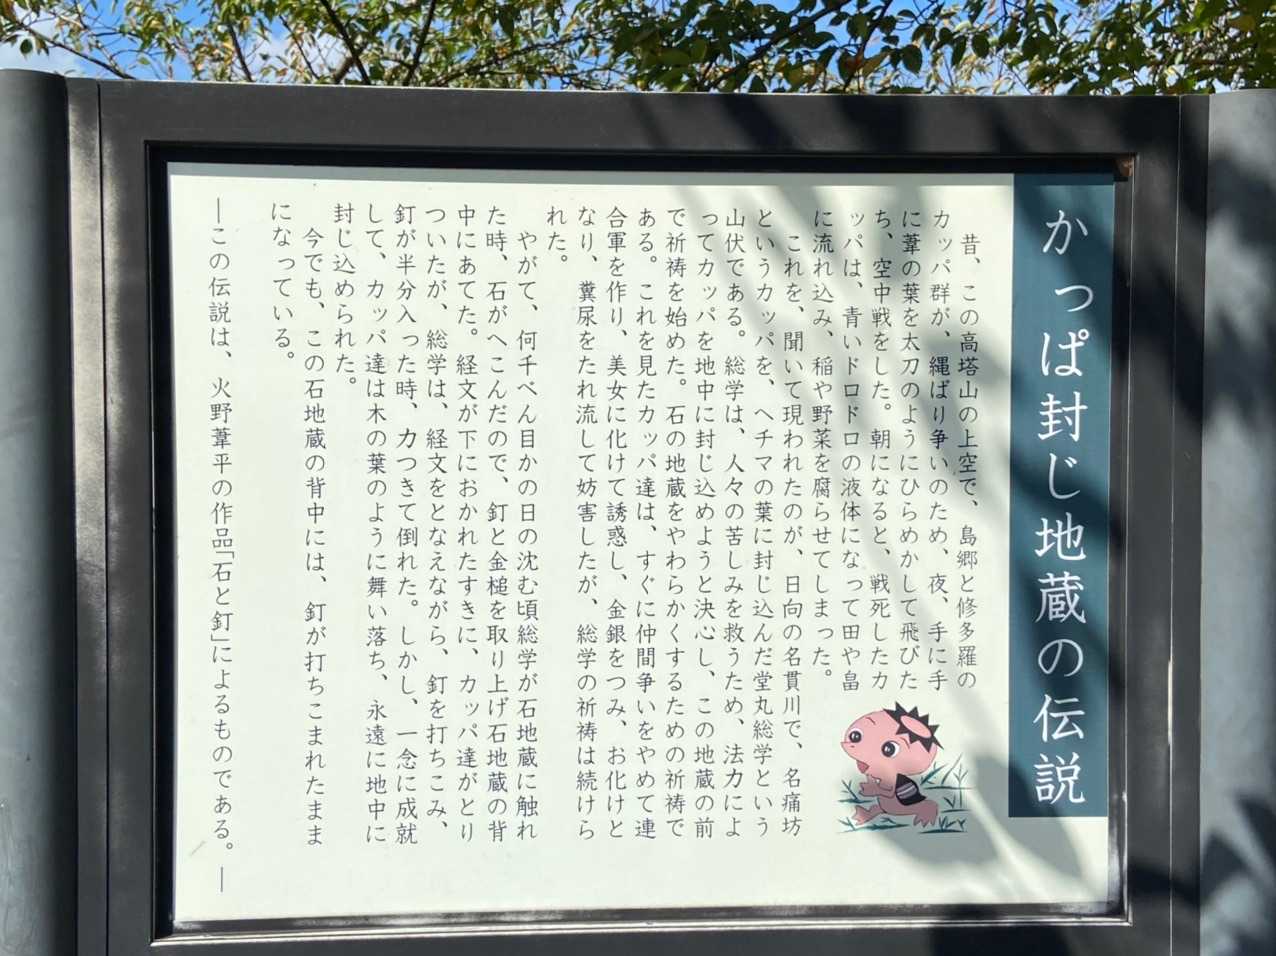 かっぱ封じ地蔵の伝説
昔、この高塔山の上空で、島郷と修多羅の
カッパ群が、縄ばり争いのため、夜、手に手
に葦の葉を太刀のようにひらめかして飛びた
ち、空中戦をした。朝になると、戦死したカ
ッパは、青いドロドロの液体になって田や畠
に流れ込み、稲や野菜を腐らせてしまった。
これを、聞いて現われたのが、日向の名貫川で、名痛坊
というカッパを、ヘチマの葉に封じ込んだ堂丸総学という
山伏である。総学は、人々の苦しみを救うため、法力によ
ってカッパを地中に封じ込めようと決心し、この地蔵の前
で祈祷を始めた。石の地蔵をやわらかくするための祈祷で
ある。これを見たカッパ達は、すぐに仲間争いをやめて連
合軍を作り、美女に化けて誘惑し、金銀をつみ、お化けと
なり、糞尿をたれ流して妨害したが、総学の祈祷は続けら
れた。
やがて、何千べん目かの日の沈む頃総学が石地蔵に触れ
た時、石がへこんだので、釘と金槌を取り上げ石地蔵の背
中にあてた。経文が下におかれたすきに、カッパ達がとり
ついたが、総学は、経文をとなえながら、釘を打ちこみ、
釘が半分入った時、力つきて倒れた。しかし、一念に成就
して、カッパ達は木の葉のように舞い落ち、永遠に地中に
封じ込められた。
今でも、この石地蔵の背中には、釘が打ちこまれたまま
になっている。
―この伝説は、火野葦平の作品「石と釘」によるものである。―